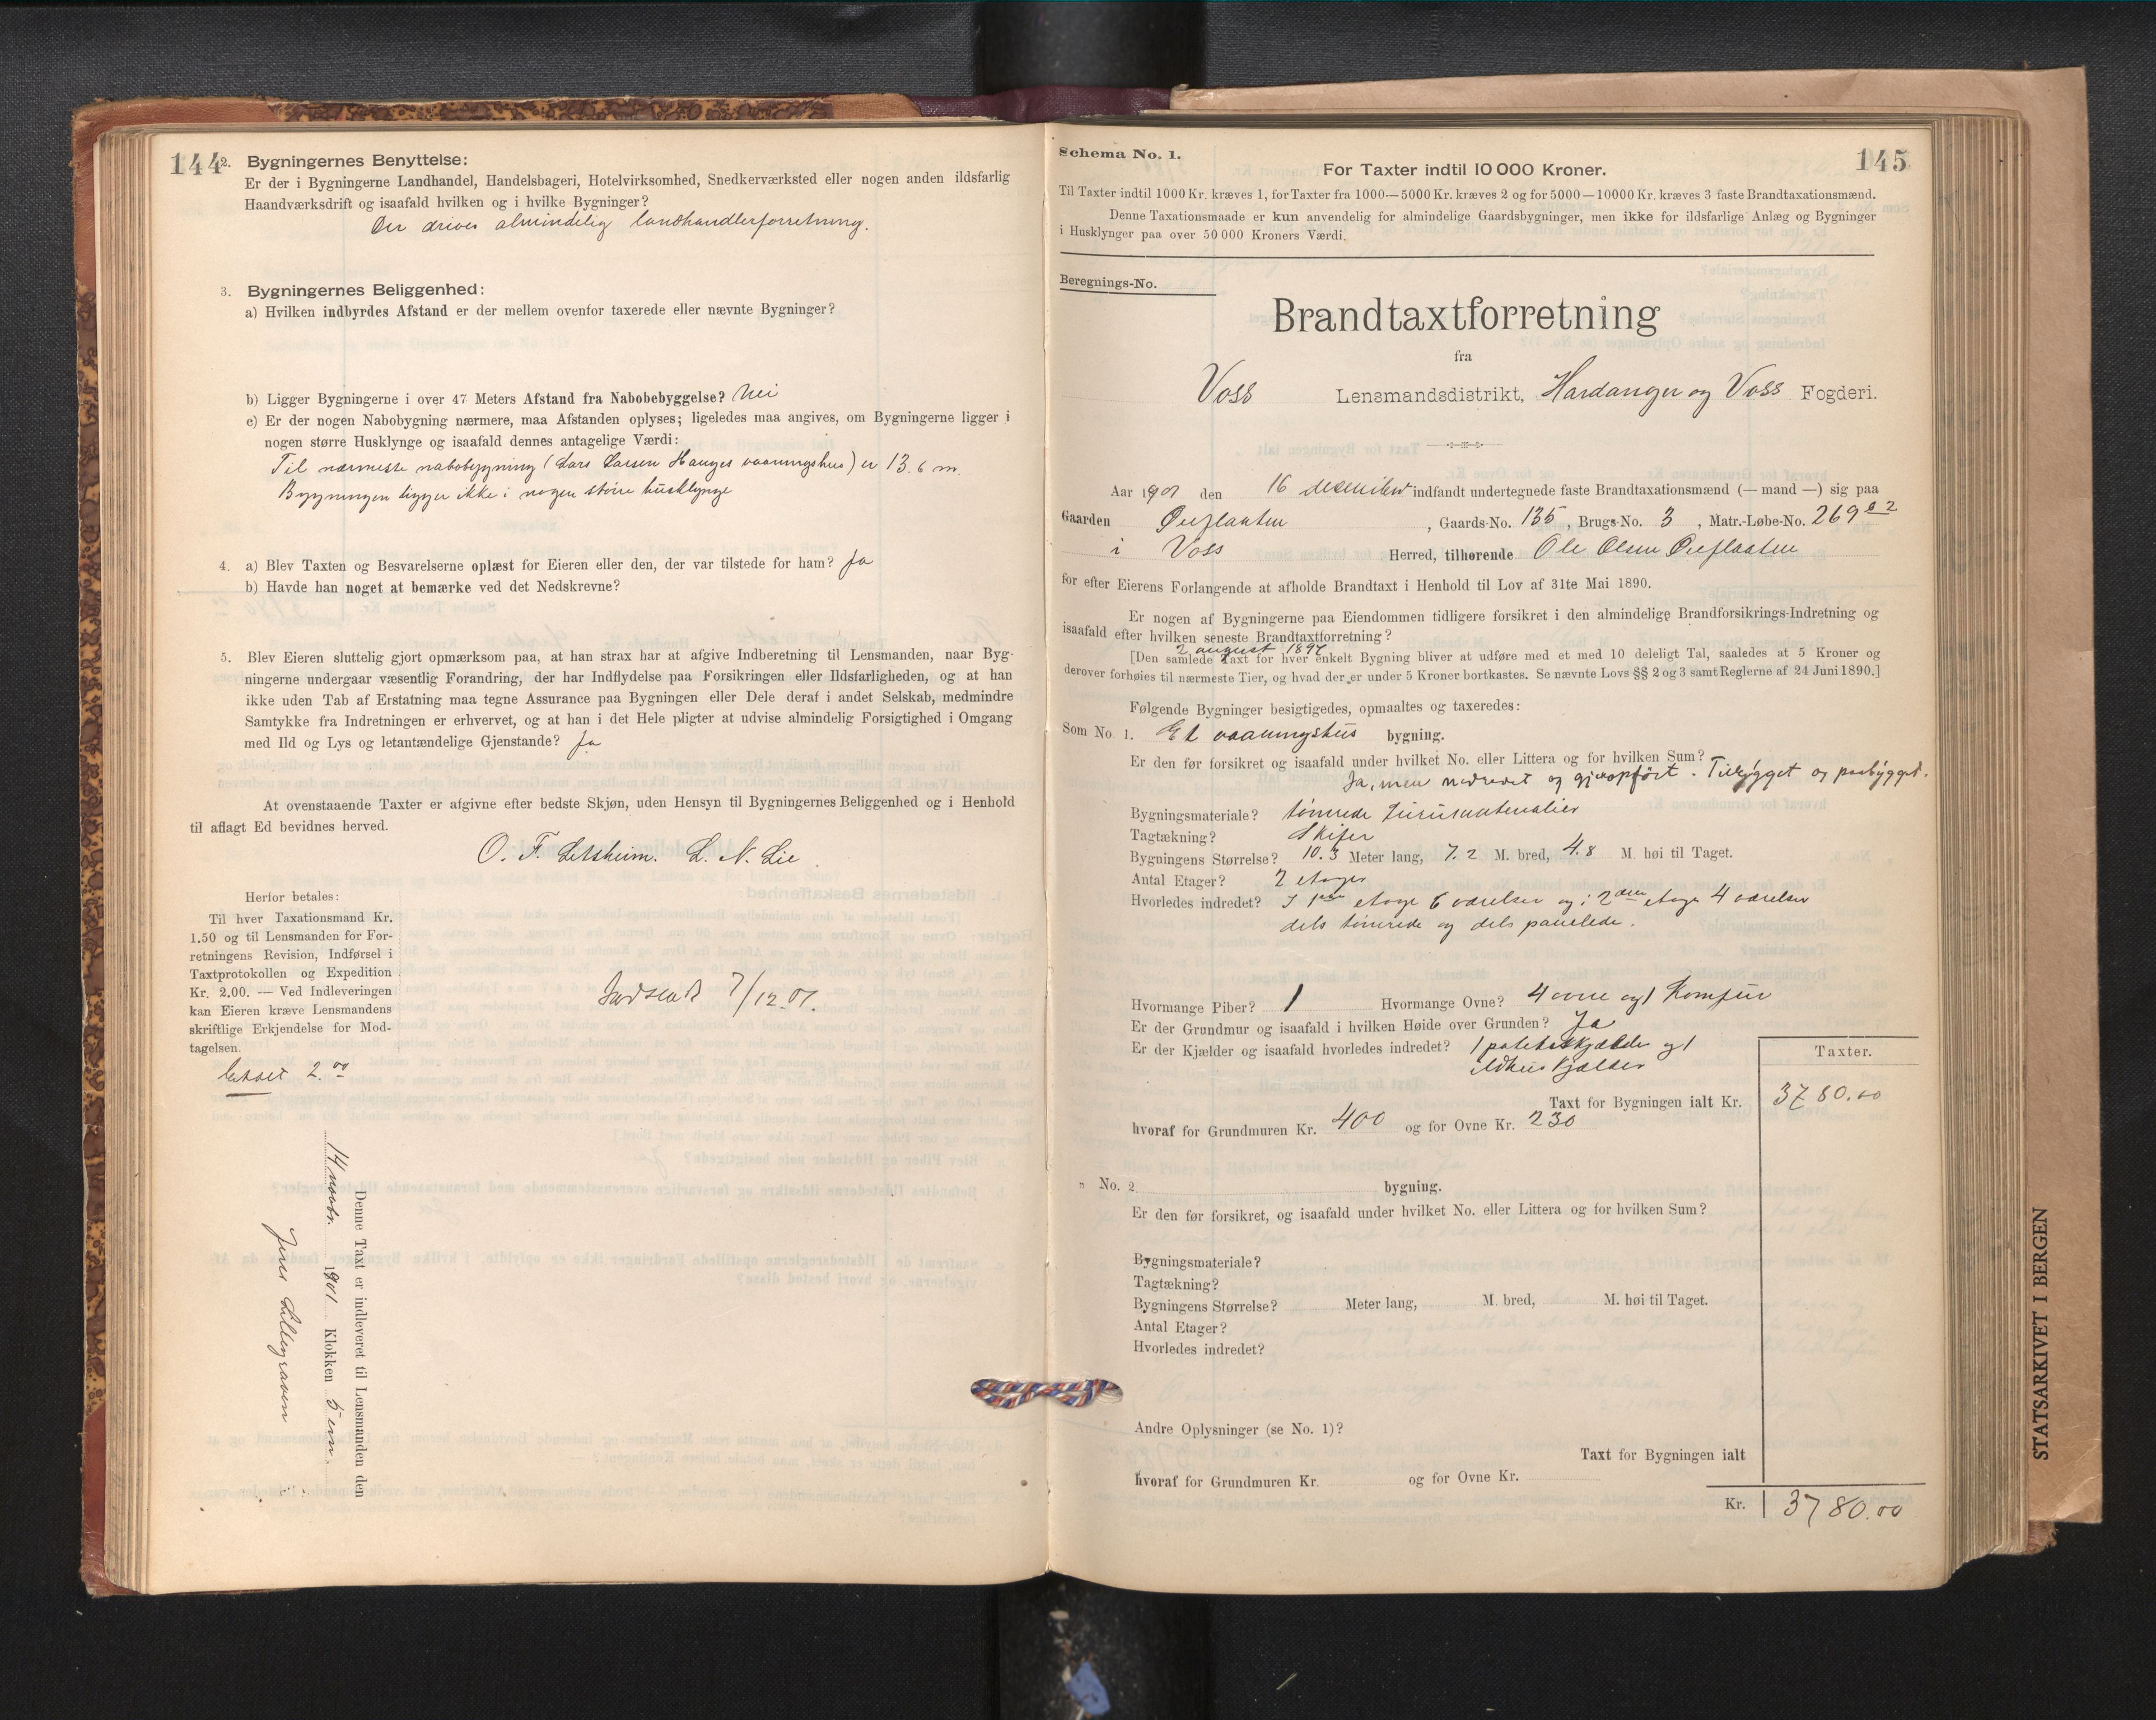 144
2. Bygningernes Benyttelse:
Er der i Bygningerne Landhandel, Handelsbageri, Hotelvirksomhed, Snedkerværksted eller nogen anden ildsfarlig
Haandværksdrift og isaafald hvilken og i hvilke Bygninger?
Der drives almindelig landhandlerforretning.
3. Bygningernes Beliggenhed:
a) Hvilken indbyrdes Afstand er der mellem ovenfor taxerede eller nævnte Bygninger?
b) Ligger Bygningerne i over 47 Meters Afstand fra Nabobebyggelse? Nei
c) Er der nogen Nabobygning nærmere, maa Afstanden oplyses; ligeledes maa angives, om Bygningerne ligger i
nogen større Husklynge og isaafald dennes antagelige Værdi:
Til nærmeste nabobygning (Lars Larsen Hauges vaaningshus) er 13.6 m.
Bygningen ligger ikke i nogen större husklynge
4. a) Blev Taxten og Besvarelserne oplæst for Eieren eller den, der var tilstede for ham? Ja
b) Havde han noget at bemærke ved det Nedskrevne?
5. Blev Eieren sluttelig gjort opmærksom paa, at han strax har at afgive Indberetning til Lensmanden, naar Byg-
ningerne undergaar væsentlig Forandring, der har Indflydelse paa Forsikringen eller Ildsfarligheden, og at han
ikke uden Tab af Erstatning maa tegne Assurance paa Bygningen eller Dele deraf i andet Selskab, medmindre
Samtykke fra Indretningen er erhvervet, og at han i det Hele pligter at udvise almindelig Forsigtighed i Omgang
med Ild og Lys og letantændelige Gjenstande? Ja
At ovenstaaende Taxter er afgivne efter bedste Skjøn, uden Hensyn til Bygningernes Beliggenhed og i Henhold
til aflagt Ed bevidnes herved.
O. F. Letsheim. L. N. Lie
Herfor betales:
Til hver Taxationsmand Kr.
1.50 og til Lensmanden for For-
retningens Revision, Indførsel i
Taxtprotokollen og Expedition
Kr. 2.00. — Ved Indleveringen
kan Eieren kræve Lensmandens
skriftlige Erkjendelse for Mod-
tagelsen.
Indsendt 7/12.01.
Betalt 2.00
Denne Taxt er indleveret til Lensmanden den
14 novbr. 1901 Klokken 5 em.
Jens Lillegraven
Schema No. 1.
145
For Taxter indtil 10 000 Kroner.
Til Taxter indtil 1000 Kr. kræves 1, for Taxter fra 1000—5000 Kr. kræves 2 og for 5000—10000 Kr. kræves 3 faste Brandtaxationsmænd.
Denne Taxationsmaade er kun anvendelig for almindelige Gaardsbygninger, men ikke for ildsfarlige Anlæg og Bygninger
i Husklynger paa over 50 000 Kroners Værdi.
Beregnings-No.
Brandtaxtforretning
fra
Voss Lensmandsdistrikt, Hardanger og Voss Fogderi.
Aar 1901 den 16 desember indfandt undertegnede faste Brandtaxationsmænd (— mand —) sig paa
Gaarden Øieflaaten, Gaards-No. 135, Brugs-No. 3, Matr.-Løbe-No. 269 b 2
i Voss Herred, tilhørende Ole Olsen Øieflaaten
for efter Eierens Forlangende at afholde Brandtaxt i Henhold til Lov af 31te Mai 1890.
Er nogen af Bygningerne paa Eiendommen tidligere forsikret i den almindelige Brandforsikrings-Indretning og
isaafald efter hvilken seneste Brandtaxtforretning?
2 august 1897
[Den samlede Taxt for hver enkelt Bygning bliver at udføre med et med 10 deleligt Tal, saaledes at 5 Kroner og
derover forhøies til nærmeste Tier, og hvad der er under 5 Kroner bortkastes. Se nævnte Lovs §§ 2 og 3 samt Reglerne af 24 Juni 1890.]
Følgende Bygninger besigtigedes, opmaaltes og taxeredes:
Som No. 1. Et vaaningshus bygning.
Er den før forsikret og isaafald under hvilket No. eller Littera og for hvilken Sum?
Ja, men nedrevet og gjenopfört. Tilbygget og paabygget.
Bygningsmateriale? tömrede furumaterialier
Tagtækning? Skifer
Bygningens Størrelse? 10.3 Meter lang, 7.2 M. bred, 4.8 M. høi til Taget.
Antal Etager? 2 etager
Hvorledes indredet? I 1ste etage 6 værelser og i 2den etage 4 værelser
dels tömrede og dels panelede.
Hvormange Piber? 1 Hvormange Ovne? 4 ovne og 1 Komfur
Er der Grundmur og isaafald i hvilken Høide over Grunden? Ja
Er der Kjælder og isaafald hvorledes indredet? 1 potetkjælder og 1
ildhus kjælder
Taxter.
Taxt for Bygningen ialt Kr. 3780.00
hvoraf for Grundmuren Kr. 400 og for Ovne Kr. 230
" No. 2 bygning.
Er den før forsikret, og isaafald under hvilket No. eller Littera og for hvilken Sum?
Bygningsmateriale?
Tagtækning?
Bygningens Størrelse? Meter lang, M. bred, M. høi til Taget.
Antal Etager?
Hvorledes indredet?
Andre Oplysninger (se No. 1)?
Taxt for Bygningen ialt
hvoraf for Grundmuren Kr. og for Ovne Kr.
Kr. 3780.00
STATSARKIVET I BERGEN